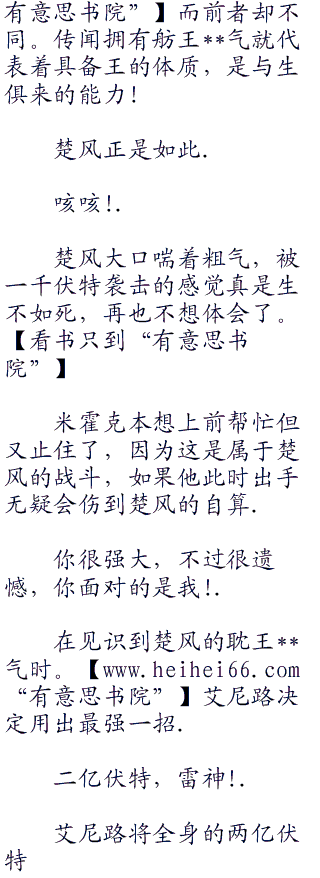 有意思书院”】而前者却不
同。传闻拥有舫王**气就代
表着具备王的体质，是与生
俱来的能力！
楚风正是如此.
咳咳!.
楚风大口喘着粗气，被
一千伏特袭击的感觉真是生
不如死，再也不想体会了。
【看书只到“有意思书
院”】
米霍克本想上前帮忙但
又止住了，因为这是属于楚
风的战斗，如果他此时出手
无疑会伤到楚风的自算.
你很强大，不过很遗
憾，你面对的是我!.
在见识到楚风的耽王**
气时。【www.heihei66.com
“有意思书院”】艾尼路决
定用出最强一招.
二亿伏特，雷神!.
艾尼路将全身的两亿伏
特